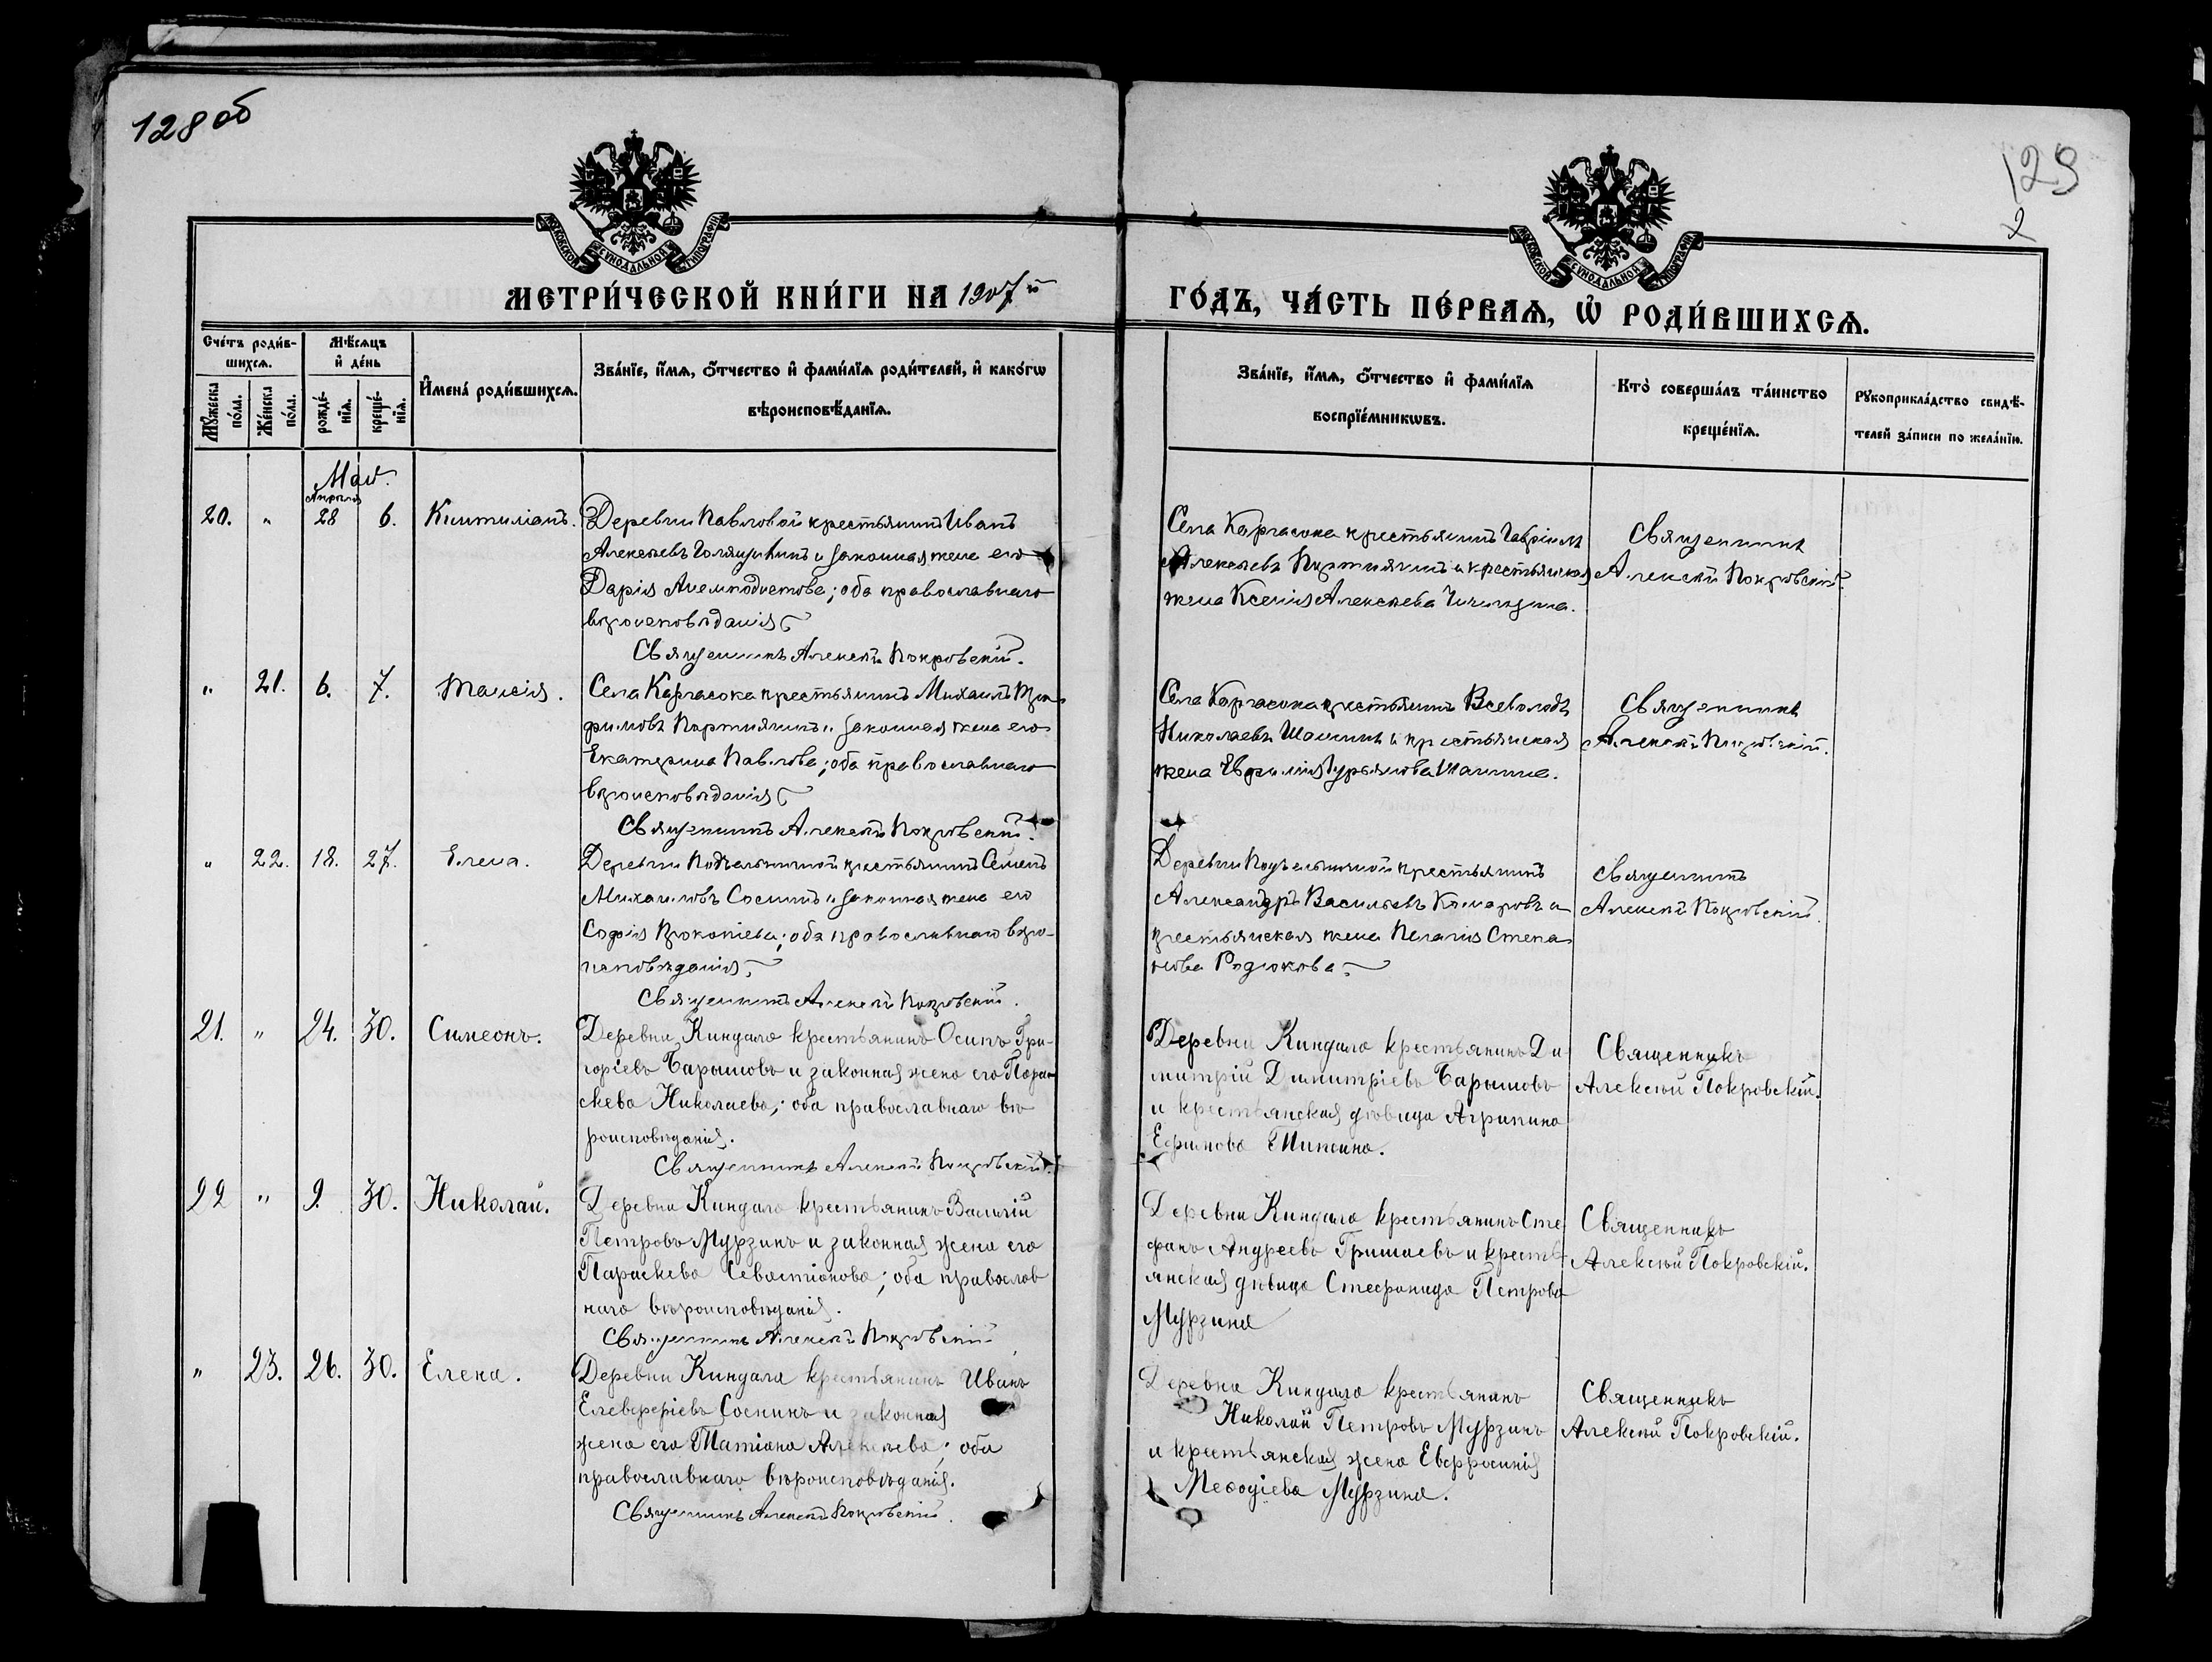 128 об
129
2
МОСКОВСКОЙ СѴНОДАЛЬНОЙ ТИПОГРАФІИ
МОСКОВСКОЙ СѴНОДАЛЬНОЙ ТИПОГРАФІИ
МЕТРИ́ЧЕСКОЙ КНИ́ГИ НА 1907й
ГО́ДЪ, ЧА́СТЬ ПЕ́РВАѦ, Ѡ҆ РОДИ́ВШИХСѦ.
Сче́тъ роди́в-
шихсѧ.
Мѣ́сѧцъ
и҆ де́нь
Мꙋ́жеска
по́ла.
Же́нска
по́ла.
рожде́-
нїѧ.
креще́-
нїѧ.
И҆мена̀ роди́вшихсѧ.
Зва́нїе, и҆́мѧ, ѻ҆́тчество и҆ фами́лїѧ роди́телей, и҆ како́гѡ
вѣроисповѣ́данїѧ.
Зва́нїе, и҆́мѧ, ѻ҆́тчество и҆ фами́лїѧ
воспрїе́мникѡвъ.
Кто̀ соверша́лъ та́инство
креще́нїѧ.
Рꙋкоприкла́дство свидѣ́-
телей за́писи по жела́нїю.
Май.
Апрѣля
20. " 28 6. Кинтиліанъ.
Деревни Павловой крестьянинъ Иванъ
Алексѣевъ Голящихинъ и законная жена его
Дарія Анемподистова; оба православнаго
вѣроисповѣданія
Священникъ Алексѣй Покровскій.
Села Каргасока крестьянинъ Гавріилъ
Алексѣевъ Портнягинъ и крестьянская
жена Ксенія Алексѣева
Священникъ
Алексѣй Покровскій.
" 21. 6. 7. Таисія.
Села Каргасока крестьянинъ Михаилъ Тро-
фимовъ Портнягинъ и законная жена его
Екатерина Павлова; оба православнаго
вѣроисповѣданія
Священникъ Алексѣй Покровскій.
Села Каргасока крестьянинъ Всеволодъ
Николаевъ Шанинъ и крестьянская
жена Гурьянова Шанина.
Священникъ
Алексѣй Покровскій.
" 22. 18. 27. Елена.
Деревни Подъельничной крестьянинъ Семенъ
Михаиловъ Соснинъ и законная жена его
Софія Прокопіева; оба православнаго вѣро-
исповѣданія.
Священникъ Алексѣй Покровскій.
Деревни Подъельничной крестьянинъ
Александръ Васильевъ Комаровъ и
крестьянская жена Пелагія Степа-
нова Родюкова.
Священникъ
Алексѣй Покровскій.
21. " 24. 30. Симеонъ.
Деревни Киндала крестьянинъ Осипъ Гри-
горіевъ Барышовъ и законная жена его Парас-
кева Николаева; оба православнаго вѣ-
роисповѣданія.
Священникъ Алексѣй Покровскій.
Деревни Киндала крестьянинъ Ди-
митрій Димитріевъ Барышовъ
и крестьянская дѣвица Агрипина
Ефимова Типсина.
Священникъ
Алексѣй Покровскій.
22 " 9. 30. Николай.
Деревни Киндала крестьянинъ Василій
Петровъ Мурзинъ и законная жена его
Параскева Севастіанова; оба православ-
наго вѣроисповѣданія.
Священникъ Алексѣй Покровскій
Деревни Киндала крестьянинъ Сте-
фанъ Андреевъ Гришаевъ и кресть-
янская дѣвица Стефанида Петрова
Мурзина
Священникъ
Алексѣй Покровскій.
" 23. 26. 30. Елена.
Деревни Киндала крестьянинъ Иванъ
Елевферіевъ Соснинъ и законная
жена его Татіана Алексѣева; оба
православнаго вѣроисповѣданія.
Священникъ Алексѣй Покровскій.
Деревни Киндала крестьянинъ
Николай Петровъ Мурзинъ
и крестьянская жена Евфросинія
Меѳодіева Мурзина.
Священникъ
Алексѣй Покровскій.